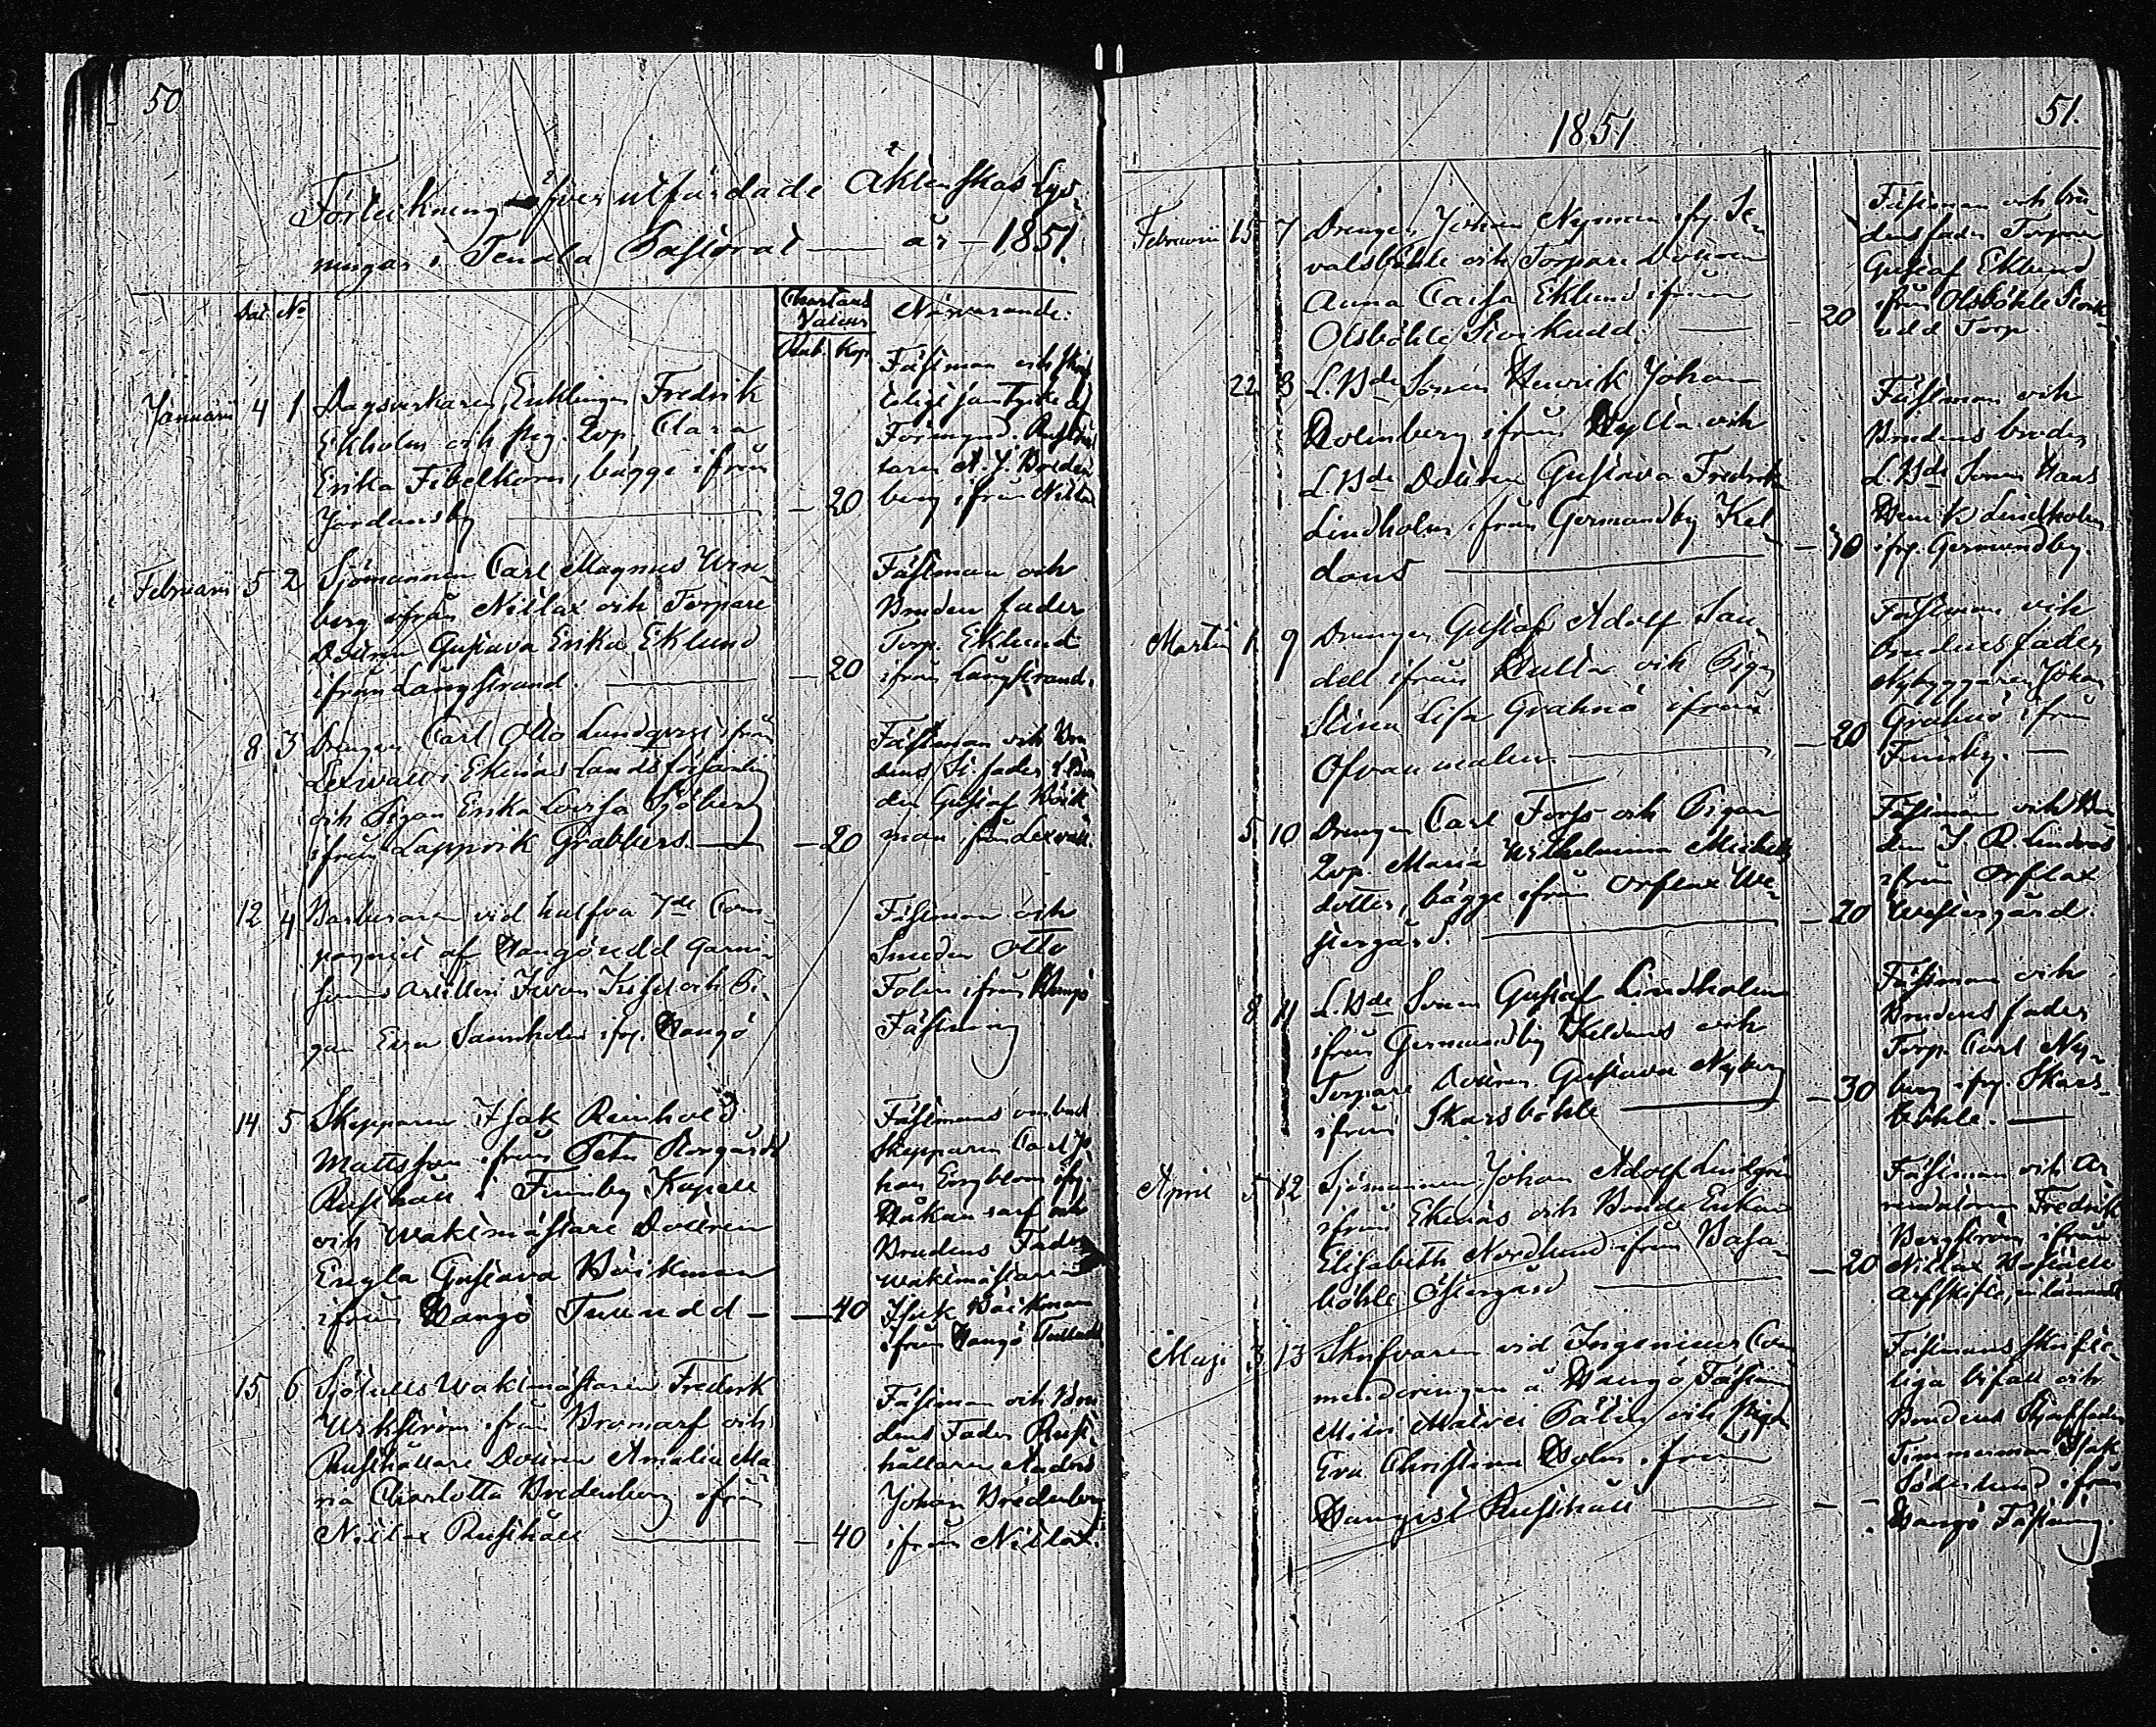 50
Förteckning öfver utfärdade Äktenskaps Lys-
ningar i Tenala Pastorat — år — 1851.
Dat. No
Chartans
Valeur
Närvarande:
Rub. Kop.
Januarii 4 1 Dagsverkaren, Enklingen Fredrik
Ekholm och pig. Qvp. Clara
Erika Febelkorn, bägge ifrån
Jordansby — 20
Fästman och skrif-
teligt samtycke af
Förmynd. Rusthål-
laren A. J. Breden-
berg ifrån Nitlax
Februarii 5 2 Sjömannen Carl Magnus Wre-
berg ifrån Nitlax och Torpare
Dottren Gustava Erika Eklund
ifrån Långstrand. — 20
Fästman och
Bruden fader
Torp. Eklund
ifrån Långstrand.
8 3 Drengen Carl Otto Lundqvist ifrån
Lexvall i Ekenäs Landsförsamling
och Pigan Erika Lovisa Sjöberg
ifrån Lappvik Grabbers. — 20
Fästman och Bru-
dens St. fader
Gustaf Böik
man ifrån Lexvall.
12 4 Barberaren vid halfva 7de Com-
pagniet af Hangöudd Garni-
sons Artilleri Iwan och Pi-
gan Eva Sannholm ifr. Hangö
Fästman och
Smeden Otto
Folin ifrån Hangö
Fästning
14 5 Skepparen Isak Reinhold
Mattsson ifrån Norrgård
Rusthåll i Finnby Kapell
och Waktmästare Dottren
Engla Gustava Böikman
ifrån Hangö Tulludd — 40
Fästmans ombud
Skepparen Carl Jo-
han Engblom ifr.
Håkansarf och
Brudens Fader
Waktmästaren
Isak Böikman
ifrån Hangö Tulludd
15 6 Sjötulls Waktmästaren Fredrik
Wikström ifrån Bromarf och
Rusthållare Dottren Amalia Ma-
ria Charlotta Bredenberg ifrån
Nitlax Rusthåll — 40
Fästman och Bru-
dens Fader Rust-
hållaren Anders
Johan Bredenberg
ifrån Nitlax.
51.
1851
Februarii 15 7 Drengen Johan Nyman ifr.
valsböhle och Torpare Dottren
Anna Caisa Eklund ifrån
Olsböhle Storkudd. — 20
Fästman och bru-
dens fader Torparen
Gustaf Eklund
ifrån Olsböhle Stork-
udd Torp.
22 8 L.Bde Sonen Henrik Johan
Holmberg ifrån Hylta och
L.Bde Dottren Gustava Fredrika
Lindholm ifrån Germundby Kel-
dans — 30
Fästman och
Brudens broder
L.Bde Sonen Hans
Henrik Lindholm
ifr. Germundby.
Martii 1 9 Drengen Gustaf Adolf San-
dell ifrån Hulta och Pigan
Stina Lisa Grahnö ifrån
Ofvanmalm — 20
Fästman och
brudens fader
Nybyggaren Johan
Grahnö ifrån
Finnby. —
5 10 Drengen Carl Forss och Pigan
Qvp. Maria Wilhelmina Michels-
dotter, bägge ifrån Orslax We-
stergård. — 20
Fästman och Bon-
den J. R. Lindroos
ifrån Orslax
Westergård.
8 11 L.Bde Sonen Gustaf Lindholm
ifrån Germundby Keldans och
Torpare Dottren Gustava Nyberg
ifrån Skarsböhle — 30
Fästman och
Brudens fader
Torp. Carl Ny-
berg ifr. Skars-
böhle. —
April 5 12 Sjömannen Johan Adolf Lindgren
ifrån Ekenäs och Bonde Enkan
Elisabeth Nordlund ifrån Basa-
böhle Östergård — 20
Fästman och Ar-
rendatoren Fredrik
Bergström ifrån
Nitlax
Arfskifte, inlämnat
Maji 3 13 Skrifvaren vid Ingenieur Com-
menderingen å Hangö Fästning
Matvei och pigan
Eva Christina Holm ifrån
Hangist Rusthåll — — —
Fästmans skrifte-
liga bifall och
Brudens Styffader
Timmerman Isak
Söderlund ifrån
Hangö Fästning.